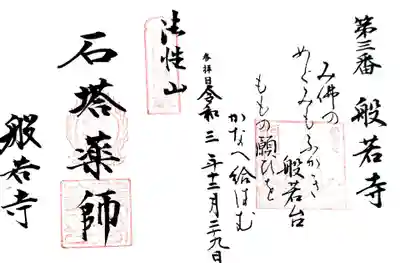 第三番 般若寺
み佛の
めぐみもふかき
般若台
ももの願ひを
かなへ給はむ
参拝日令和三年十二月二九日
法性山
石塔薬師
般若寺